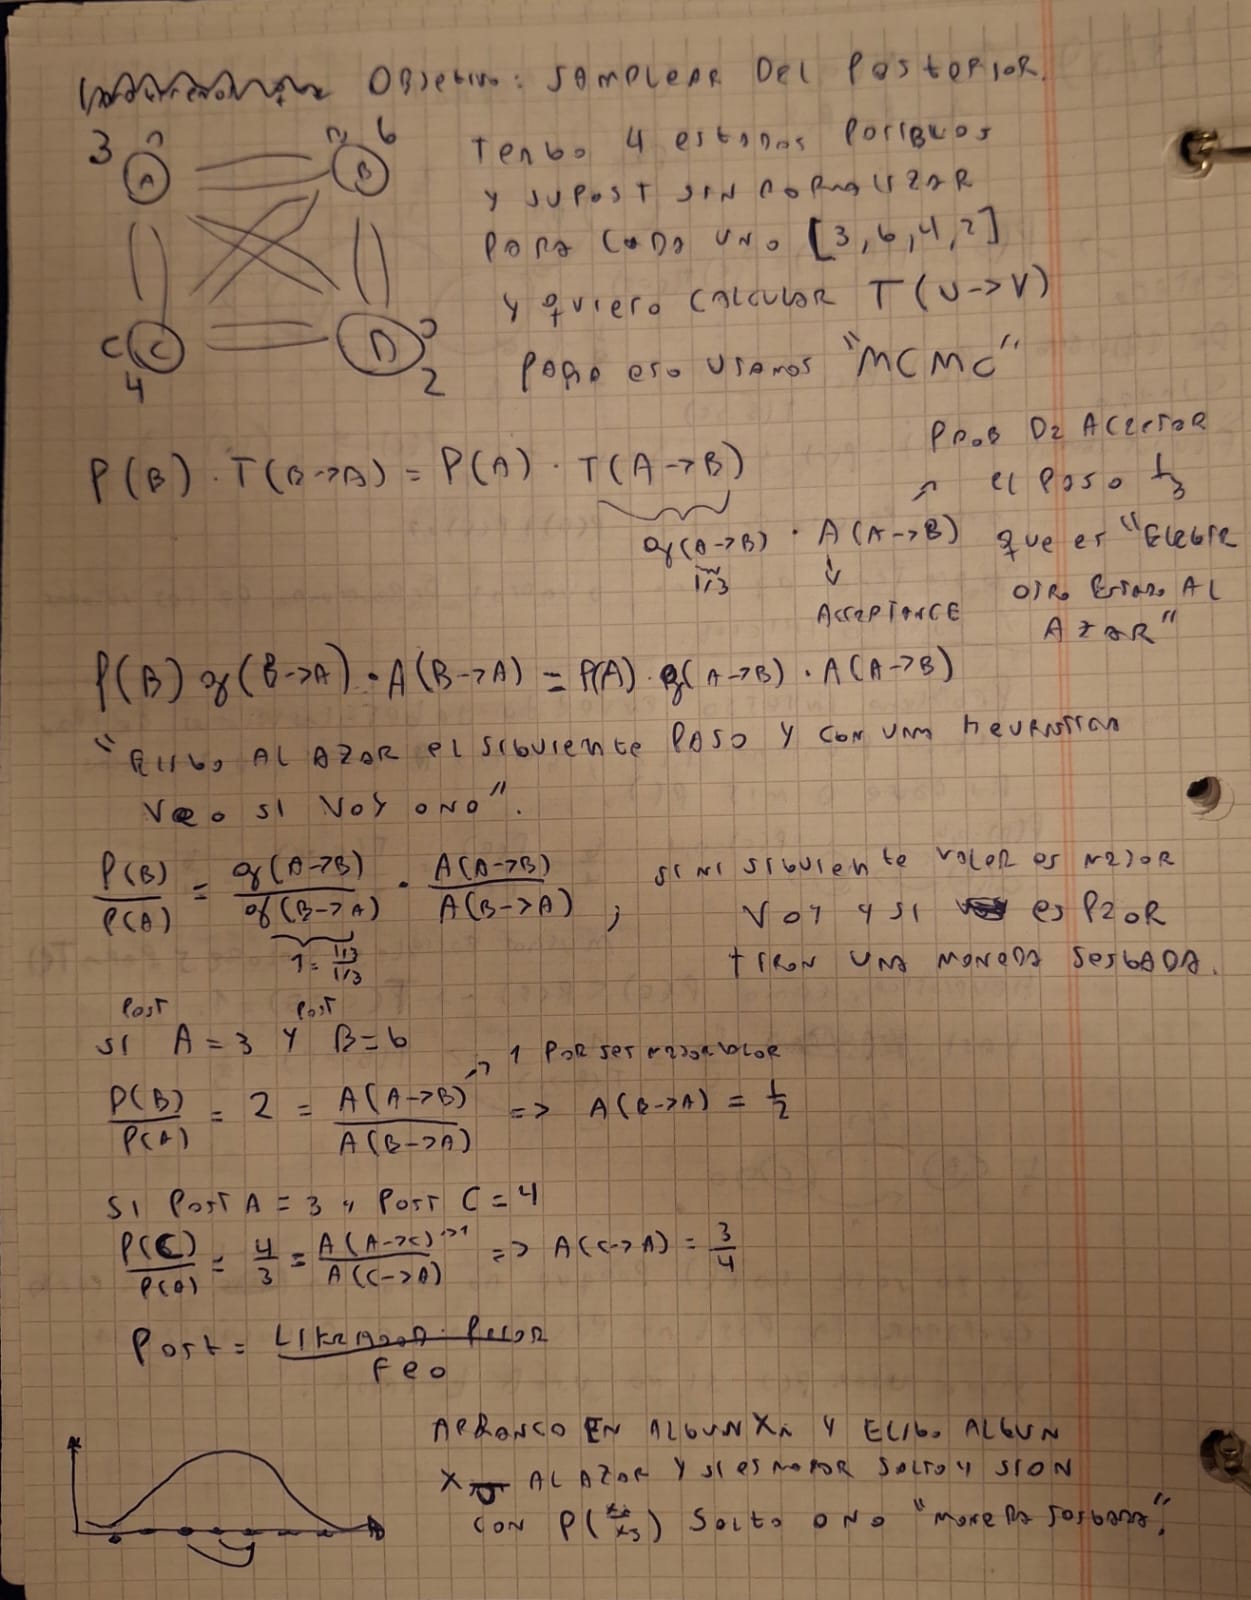 Objetivo: SAMPLEAR DEL POSTERIOR.
3 A B 6
C 4 D 2
Tengo 4 estados posibles
y su post sin normalizar
para cada uno [3,6,4,2]
y quiero calcular T(U->V)
para eso usamos "MCMC"
P(B) · T(B->A) = P(A) · T(A->B)
q(A->B) · A(A->B)
1/3
Acceptance
Prob de aceptar
el paso 1/3
que es "Elegir
otro estado al
azar"
P(B) q(B->A) · A(B->A) = P(A) · q(A->B) · A(A->B)
"Elijo al azar el siguiente paso y con una heuristica
veo si voy o no".
P(B)/P(A) = q(A->B)/q(B->A) · A(A->B)/A(B->A) ;
1 = 1/3 / 1/3
si mi siguiente valor es mejor
voy y si es peor
tiron una moneda sesgada.
Post Post
si A = 3 y B = 6
-> 1 por ser mejor valor
P(B)/P(A) = 2 = A(A->B)/A(B->A) => A(B->A) = 1/2
si Post A = 3 y Post C = 4
P(C)/P(A) = 4/3 = A(A->C)/A(C->A) ->1 => A(C->A) = 3/4
Post = Likelihood · Prior / Feo
Arranco en algun Xi y elijo algun
X al azar y si es mayor salto y si on
con P( ) salto o no "moneda sesgada".